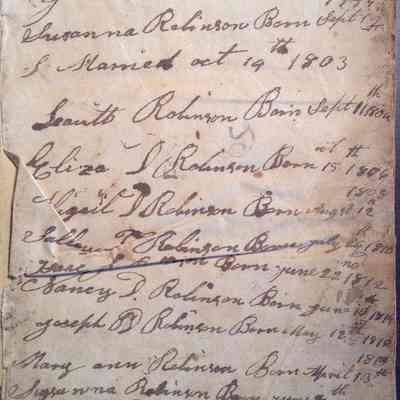 Susanna Robinson Born Sept 17
Married oct 19th 1803
Robinson Born Sept 11th 1804
Eliza D Robinson Born oct 15th 1806
1808
Abigail D Robinson Born August 12th
Robinson Born july 1810
Born june 22nd 1812
Nancy D. Robinson Born june 10th 1814
joseph D Robinson Born May 12th 1816
1818
Mary ann Robinson Born April 13th
Susanna Robinson Born june